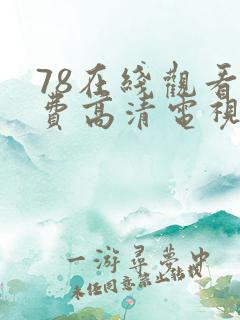 78在綫觀看
費高清電視
一游尋夢中
未经同意禁止转载